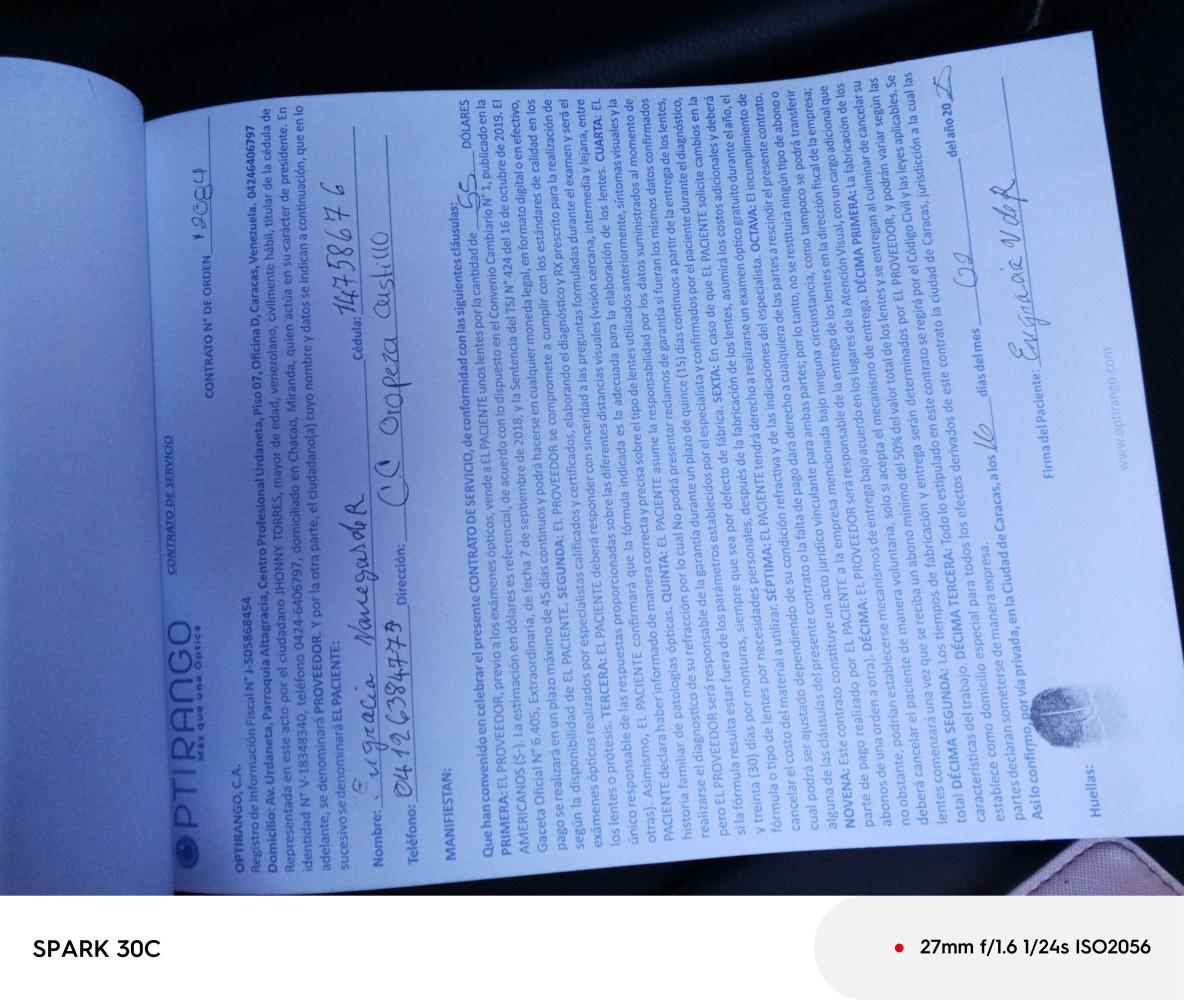 OPTIRANGO
Más que una Óptica
CONTRATO DE SERVICIO
CONTRATO N° DE ORDEN 12384
OPTIRANGO, C.A.
Registro de Información Fiscal N° J-505868454
Domicilio: Av. Urdaneta, Parroquia Altagracia, Centro Profesional Urdaneta, Piso 07, Oficina D, Caracas, Venezuela. 04246406797
Representada en este acto por el ciudadano JHONNY TORRES, mayor de edad, venezolano, civilmente hábil, titular de la cédula de
identidad N° V-18348340, teléfono 0424-6406797, domiciliado en Chacao, Miranda, quien actúa en su carácter de presidente. En
adelante, se denominará PROVEEDOR. Y por la otra parte, el ciudadano(a) cuyo nombre y datos se indican a continuación, que en lo
sucesivo se denominará EL PACIENTE:
Nombre: Engracia Vanegas de R Cédula: 14758676
Teléfono: 04126384773 Dirección: CC Oropeza Castillo
MANIFIESTAN:
Que han convenido en celebrar el presente CONTRATO DE SERVICIO, de conformidad con las siguientes cláusulas:
PRIMERA: EL PROVEEDOR, previo a los exámenes ópticos, vende a EL PACIENTE unos lentes por la cantidad de 55 DÓLARES
AMERICANOS ($-). La estimación en dólares es referencial, de acuerdo con lo dispuesto en el Convenio Cambiario N° 1, publicado en la
Gaceta Oficial N° 6.405, Extraordinaria, de fecha 7 de septiembre de 2018, y la Sentencia del TSJ N° 424 del 16 de octubre de 2019. El
pago se realizará en un plazo máximo de 45 días continuos y podrá hacerse en cualquier moneda legal, en formato digital o en efectivo,
según la disponibilidad de EL PACIENTE. SEGUNDA: EL PROVEEDOR se compromete a cumplir con los estándares de calidad en los
exámenes ópticos realizados por especialistas calificados y certificados, elaborando el diagnóstico y RX prescrito para la realización de
los lentes o prótesis. TERCERA: EL PACIENTE deberá responder con sinceridad a las preguntas formuladas durante el examen y será el
único responsable de las respuestas proporcionadas sobre las diferentes distancias visuales (visión cercana, intermedia y lejana, entre
otras). Asimismo, EL PACIENTE confirmará que la fórmula indicada es la adecuada para la elaboración de los lentes. CUARTA: EL
PACIENTE declara haber informado de manera correcta y precisa sobre el tipo de lentes utilizados anteriormente, síntomas visuales y la
historia familiar de patologías ópticas. QUINTA: EL PACIENTE asume la responsabilidad por los datos suministrados al momento de
realizarse el diagnostico de su refracción por lo cual No podrá presentar reclamos de garantía si fueran los mismos datos confirmados
pero EL PROVEEDOR será responsable de la garantía durante un plazo de quince (15) días continuos a partir de la entrega de los lentes,
si la fórmula resulta estar fuera de los parámetros establecidos por el especialista y confirmados por el paciente durante el diagnóstico,
y treinta (30) días por monturas, siempre que sea por defecto de fábrica. SEXTA: En caso de que EL PACIENTE solicite cambios en la
fórmula o tipo de lentes por necesidades personales, después de la fabricación de los lentes, asumirá los costos adicionales y deberá
cancelar el costo del material a utilizar. SÉPTIMA: EL PACIENTE tendrá derecho a realizarse un examen óptico gratuito durante el año, el
cual podrá ser ajustado dependiendo de su condición refractiva y de las indicaciones del especialista. OCTAVA: El incumplimiento de
alguna de las cláusulas del presente contrato o la falta de pago dará derecho a cualquiera de las partes a rescindir el presente contrato.
NOVENA: Este contrato constituye un acto jurídico vinculante para ambas partes; por lo tanto, no se restituirá ningún tipo de abono o
parte de pago realizado por EL PACIENTE a la empresa mencionada bajo ninguna circunstancia, como tampoco se podrá transferir
abonos de una orden a otra). DÉCIMA: EL PROVEEDOR será responsable de la entrega de los lentes en la dirección fiscal de la empresa;
no obstante, podrían establecerse mecanismos de entrega bajo acuerdo en los lugares de la Atención Visual, con un cargo adicional que
deberá cancelar el paciente de manera voluntaria, solo si acepta el mecanismo de entrega. DÉCIMA PRIMERA: La fabricación de los
lentes comenzará una vez que se reciba un abono mínimo del 50% del valor total de los lentes y se entregan al culminar de cancelar su
total DÉCIMA SEGUNDA: Los tiempos de fabricación y entrega serán determinados por EL PROVEEDOR, y podrán variar según las
características del trabajo. DÉCIMA TERCERA: Todo lo estipulado en este contrato se regirá por el Código Civil y las leyes aplicables. Se
establece como domicilio especial para todos los efectos derivados de este contrato la ciudad de Caracas, jurisdicción a la cual las
partes declaran someterse de manera expresa.
Así lo confirmo, por vía privada, en la Ciudad de Caracas, a los 16 días del mes 02 del año 20 25
Firma del Paciente: Engracia V de R
Huellas:
www.optirango.com
SPARK 30C
27mm f/1.6 1/24s ISO2056